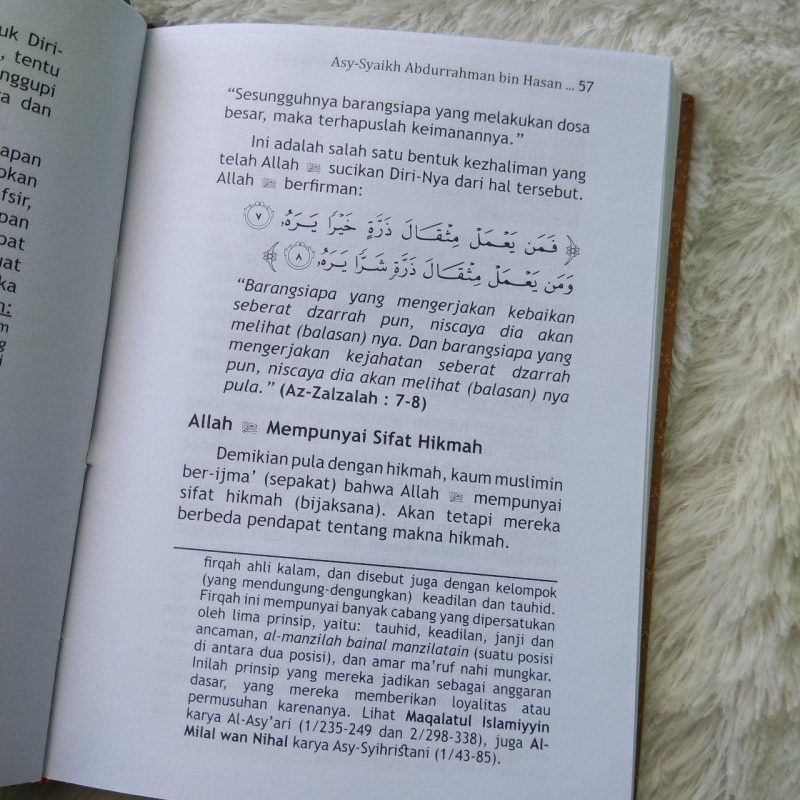 uk Diri-
, tentu
nggupi
ya dan
apan
pkan
fsir,
pan
pat
uat
ka
n:
m
g
i
Asy-Syaikh Abdurrahman bin Hasan ... 57
“Sesungguhnya barangsiapa yang melakukan dosa
besar, maka terhapuslah keimanannya.”
Ini adalah salah satu bentuk kezhaliman yang
telah Allah ﷻ sucikan Diri-Nya dari hal tersebut.
Allah ﷻ berfirman:
﴿ فَمَن يَعْمَلْ مِثْقَالَ ذَرَّةٍ خَيْرًا يَرَهُۥ ٧
وَمَن يَعْمَلْ مِثْقَالَ ذَرَّةٍ شَرًّا يَرَهُۥ ٨ ﴾
“Barangsiapa yang mengerjakan kebaikan
seberat dzarrah pun, niscaya dia akan
melihat (balasan) nya. Dan barangsiapa yang
mengerjakan kejahatan seberat dzarrah
pun, niscaya dia akan melihat (balasan) nya
pula.” (Az-Zalzalah : 7-8)
Allah ﷻ Mempunyai Sifat Hikmah
Demikian pula dengan hikmah, kaum muslimin
ber-ijma’ (sepakat) bahwa Allah ﷻ mempunyai
sifat hikmah (bijaksana). Akan tetapi mereka
berbeda pendapat tentang makna hikmah.
firqah ahli kalam, dan disebut juga dengan kelompok
(yang mendungung-dengungkan) keadilan dan tauhid.
Firqah ini mempunyai banyak cabang yang dipersatukan
oleh lima prinsip, yaitu: tauhid, keadilan, janji dan
ancaman, al-manzilah bainal manzilatain (suatu posisi
di antara dua posisi), dan amar ma’ruf nahi mungkar.
Inilah prinsip yang mereka jadikan sebagai anggaran
dasar, yang mereka memberikan loyalitas atau
permusuhan karenanya. Lihat Maqalatul Islamiyyin
karya Al-Asy’ari (1/235-249 dan 2/298-338), juga Al-
Milal wan Nihal karya Asy-Syihristani (1/43-85).